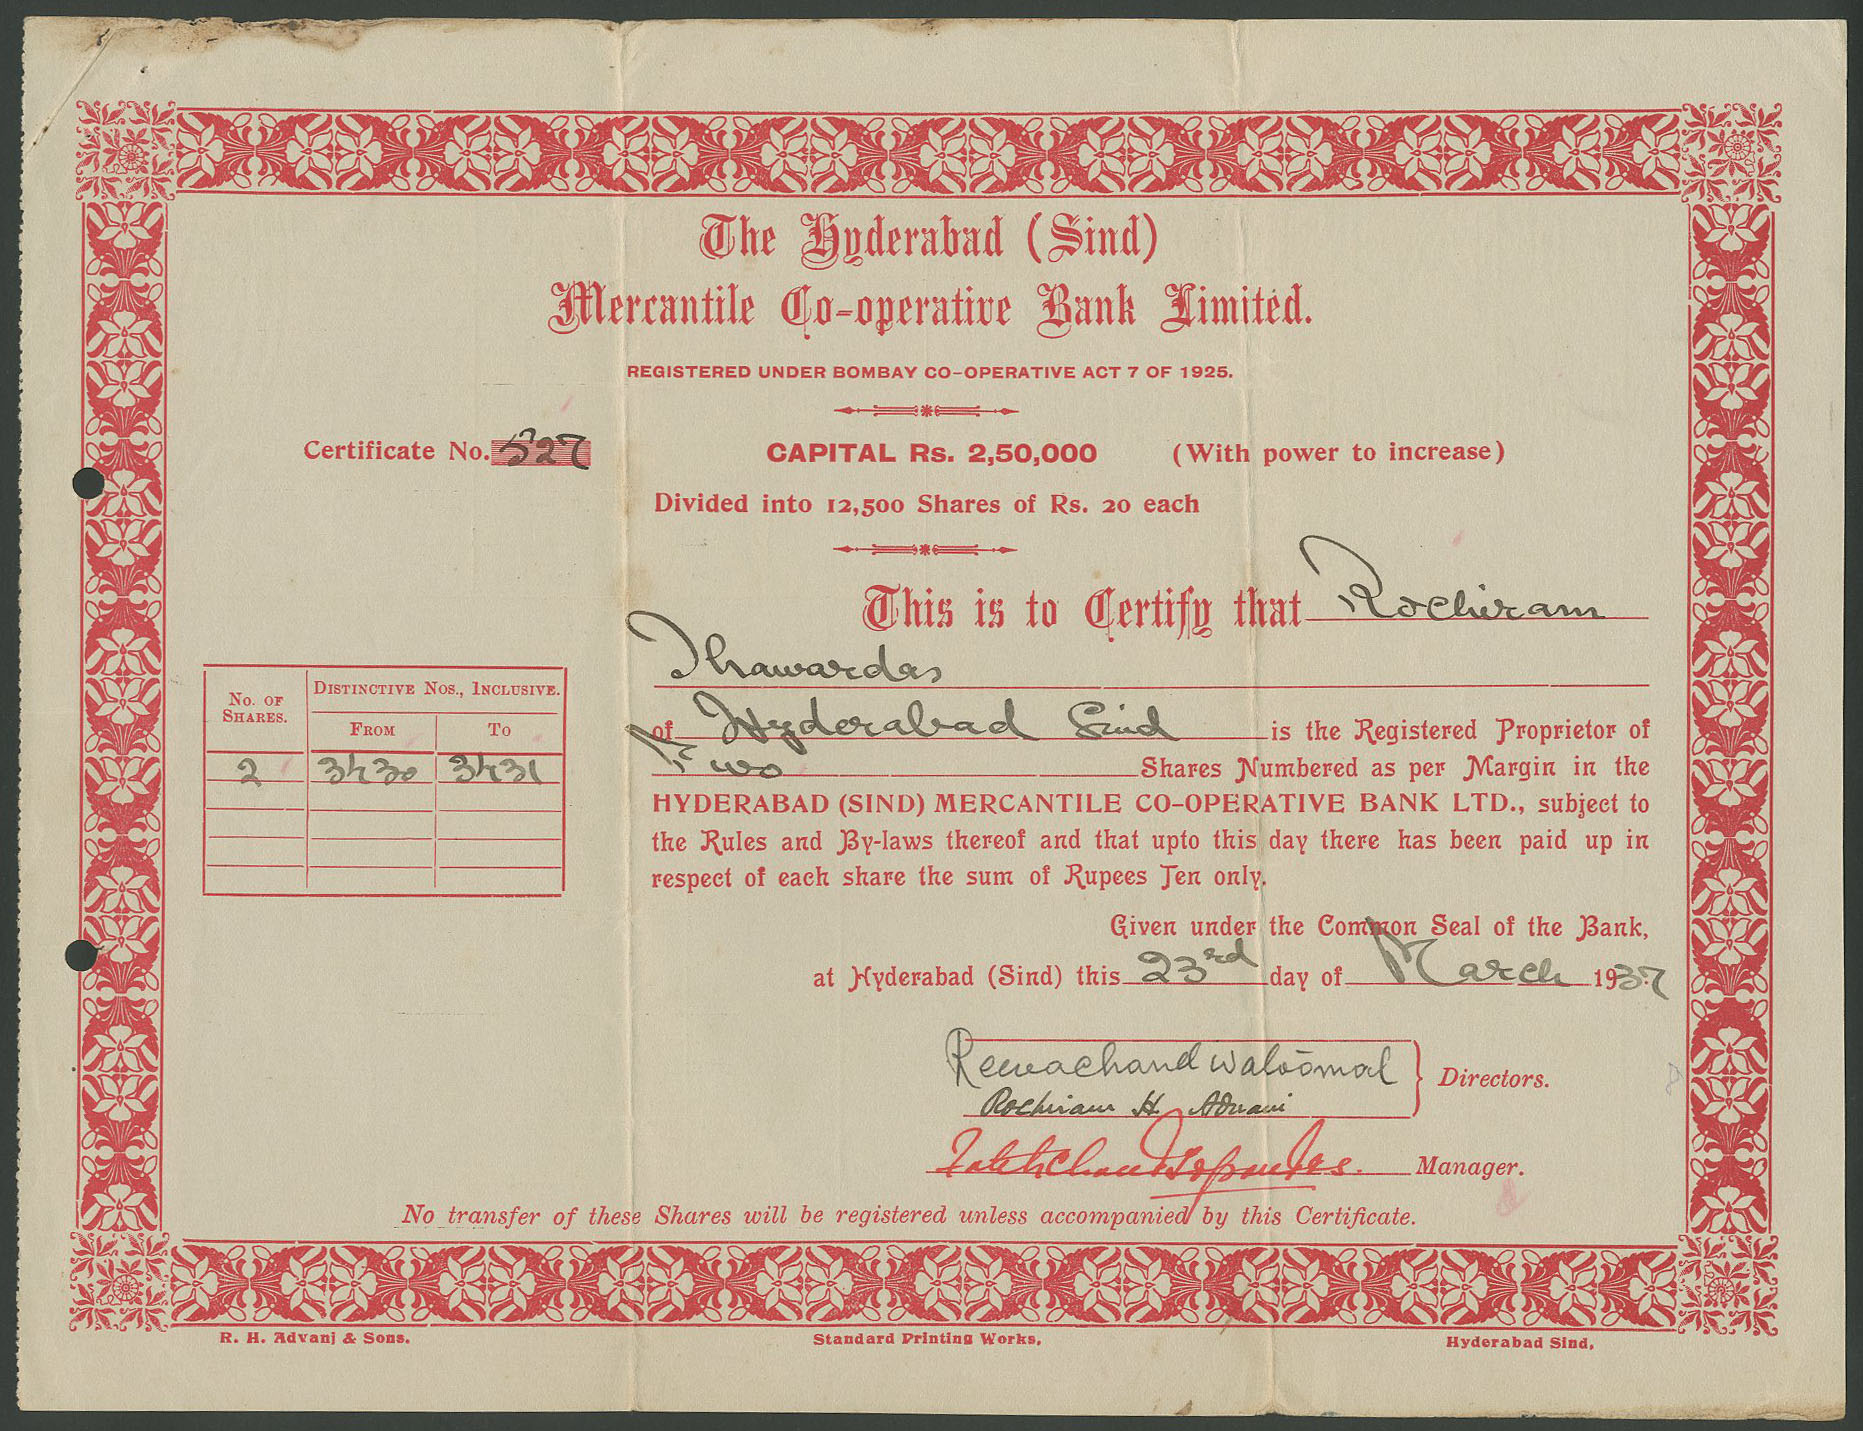 The Hyderabad (Sind)
Mercantile Co-operative Bank Limited.
REGISTERED UNDER BOMBAY CO-OPERATIVE ACT 7 OF 1925.
Certificate No. 527
CAPITAL Rs. 2,50,000 (With power to increase)
Divided into 12,500 Shares of Rs. 20 each
This is to Certify that Rochiram
Thawardas
of Hyderabad Sind is the Registered Proprietor of
Two Shares Numbered as per Margin in the
HYDERABAD (SIND) MERCANTILE CO-OPERATIVE BANK LTD., subject to
the Rules and By-laws thereof and that upto this day there has been paid up in
respect of each share the sum of Rupees Ten only.
No. of Shares. Distinctive Nos., Inclusive.
From To
2 3430 3431
Given under the Common Seal of the Bank,
at Hyderabad (Sind) this 23rd day of March 1937
Rewachand Waloomal
Directors.
Rochiram H. Advani
Manager.
No transfer of these Shares will be registered unless accompanied by this Certificate.
R. H. Advani & Sons. Standard Printing Works, Hyderabad Sind,